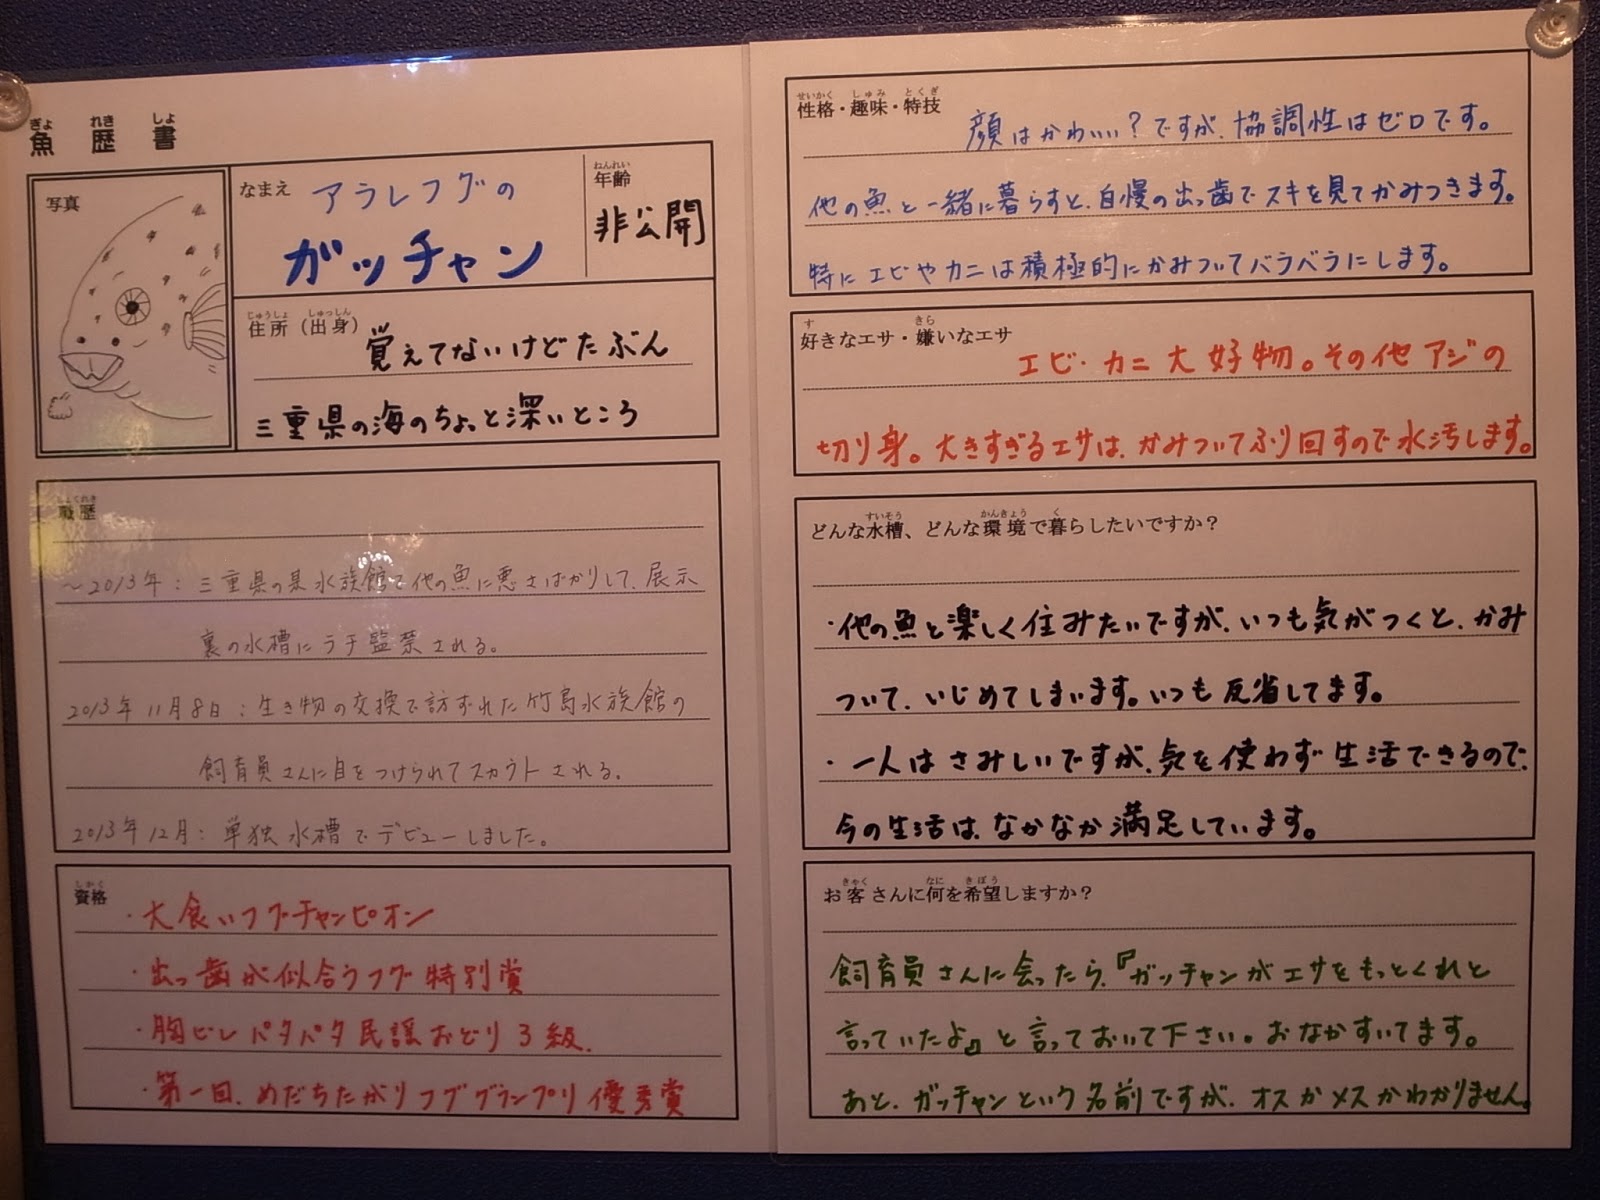 魚歴書
写真
なまえ アラレフグの
ガッチャン
年齢
非公開
住所(出身) 覚えてないけどたぶん
三重県の海のちょっと深いところ
職歴
～2013年：三重県の某水族館で他の魚に悪さばかりして、展示
裏の水槽にラチ監禁される。
2013年11月8日：生き物の交換で訪ずれた竹島水族館の
飼育員さんに目をつけられてスカウトされる。
2013年12月：単独水槽でデビューしました。
資格
・大食いフグチャンピオン
・出っ歯が似合うフグ特別賞
・胸ビレパタパタ民謡おどり3級.
・第一回、めだちたがりフググランプリ優秀賞
性格・趣味・特技
顔はかわいい？ですが、協調性はゼロです。
他の魚と一緒に暮らすと、自慢の出っ歯でスキを見てかみつきます。
特にエビやカニは積極的にかみついてバラバラにします。
好きなエサ・嫌いなエサ
エビ・カニ大好物。その他アジの
切り身。大きすぎるエサは、かみついてふり回すので水汚します。
どんな水槽、どんな環境で暮らしたいですか？
・他の魚と楽しく住みたいですが、いつも気がつくと、かみ
ついて、いじめてしまいます。いつも反省してます。
・一人はさみしいですが、気を使わず生活できるので、
今の生活は、なかなか満足しています。
お客さんに何を希望しますか？
飼育員さんに会ったら、『ガッチャンがエサをもっとくれと
言っていたよ』と言っておいて下さい。おなかすいてます。
あと、ガッチャンという名前ですが、オスかメスかわかりません。